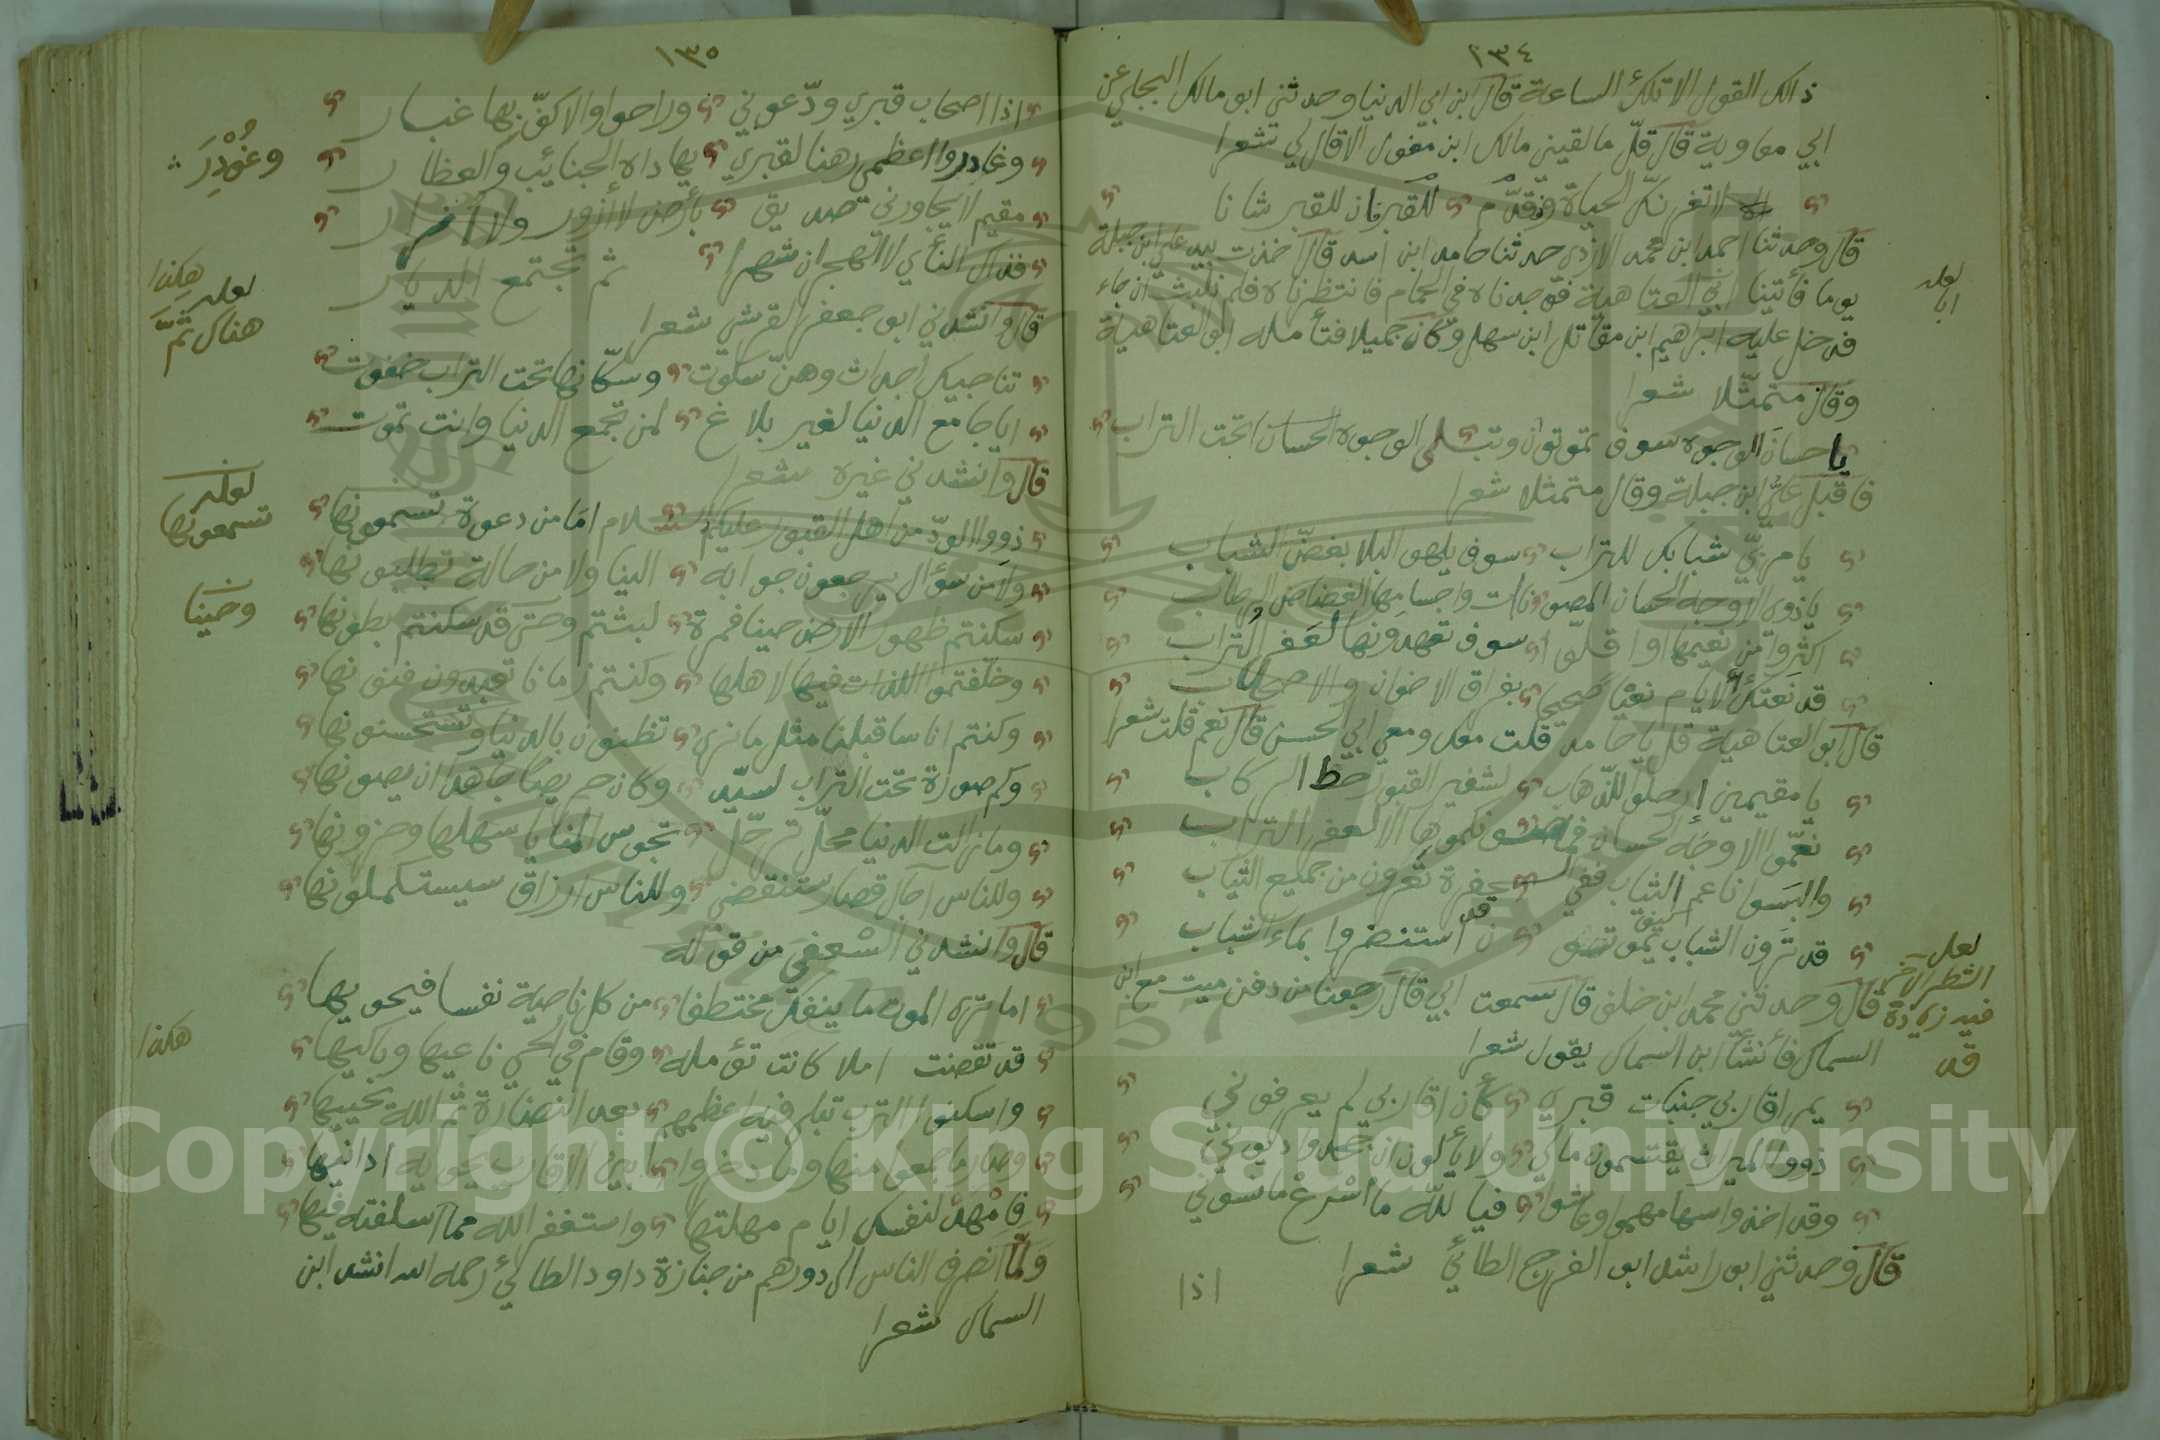 ١٣٤
ذلك القول الا تلك الساعة قال ابن ابي الدنيا وحدثني ابو مالك البجلي عن
ابي معاوية قال قلّ ما لقيني مالك ابن مغول الا قال لي شعرا
لا تغرنك الحياة وقدّم للقبر فان للقبر شانا
قال وحدثنا احمد ابن محمد الازدي حدثنا حامد ابن اسد قال اخذت بيد علي ابن جبلة
يوما فأتينا ابي العتاهية فوجدناه في الحمام فانتظرناه فلم نلبث ان جاء
لعله
ابا
فدخل عليه ابراهيم ابن مقاتل ابن سهل وكان جميلا فتأمله ابو العتاهية
وقال متمثّلا شعرا
يا حسان الوجوه سوف تموتون وتبلى الوجوه الحسان تحت التراب
فاقبل عليّ ابن جبلة وقال متمثلا شعرا
يا مربّي شبابك للتراب سوف يلهو البلا بغضّ الشباب
يا ذوي الاوجه الحسان المصونات واجسامها الغضاض الرطاب
اكثروا من نعيمها او اقلّوا سوف تهدونها لعفر التراب
قد نعتك الايام نعيا صحيحا بفراق الاخوان والاصحاب
قال ابو العتاهية قل يا حامد قلت معك ومع ابي الحسن قال نعم قلت شعرا
يا مقيمين ارحلوا للذهاب لشفير القبور حط الركاب
نعّموا الاوجه الحسان فما صونكموها الا لعفر التراب
والبسوا ناعم الثياب ففي الحفرة تعرون من جميع الثياب
قد ترون الشباب كيف تموتون قد استنضروا بماء الشباب
لعل
الشطر الاخير
فيه زيادة
قد
قال وحدثني محمد ابن خلف قال سمعت ابي قال رجعنا من دفن ميت مع ابن
السماك فأنشأ ابن السماك يقول شعرا
يمر اقاربي جنبات قبري كأن اقاربي لم يعرفوني
ذوو الميراث يقتسمون مالي ولا يألون ان جحدوا ديوني
وقد اخذوا سهامهمو وعاشوا فيا لله ما اسرع ما نسوني
قال وحدثني ابو راشد ابو الفرج الطائي شعرا
اذا
١٣٥
اذا اصحاب قبري ودّعوني وراحوا والاكفّ بها غبار
وغادروا اعظمي رهنا لقبري بها داه الجنائب والعظار
وغُوْدِرَ
مقيم لا يجاورني صديق بأرض لا أزور ولا أزار
فذاك النأي لا الهجران شهرا ثم تجتمع الديار
هكذا
لعله
هناك ثمَّ
قال وانشدني ابو جعفر القرشي شعرا
تناجيك اجداث وهنّ سكوت وسكّانها تحت التراب خفوت
ايا جامع الدنيا لغير بلاغ لمن تجمع الدنيا وانت تموت
قال وانشدني غيره شعرا
ذووا الودّ من اهل القبور عليكم السلام اما من دعوة تسمعونها
لعله
تسمعونها
ولا من سؤال يرجعون جوابه الينا ولا من حالة تطلبونها
سكنتم ظهور الارض حينا فمرة لبثتم وحتى قد سكنتم بطونها
وحينا
وخلفتموا اللذات فيها لاهلها وكنتم زمانا تعبدون فنونها
وكنتم اناسا قبلنا مثل ما نرى تظنون بالدنيا وتستحسنونها
وكم صورة تحت التراب لسيّد وكان حريصا جاهدا ان يصونها
وما زالت الدنيا محلّ ترحّل تجوس المنايا سهلها وحزونها
وللناس آجال قصار ستنقضي وللناس ارزاق سيستكملونها
قال وانشدني الشعفي من قوله
اما ترى الموت ما ينفك مختطفا من كل ناحية نفسا فيحويها
قد تقضت املا كانت تؤمله وقام في الحي ناعيها وباكيها
هكذا
واسكنوا الترب تبلى فيه اعظمهم بعد النضارة ثم الله يحييها
وصار ما جمعوا منها وما دخروا بين الاقارب يحويه ادانيها
فامهد لنفسك ايام مهلتها واستغفر الله مما اسلفته فيها
ولمّا انصرف الناس الى دورهم من جنازة داود الطائي رحمه الله انشد ابن
السماك شعرا
Copyright © King Saud University
1957